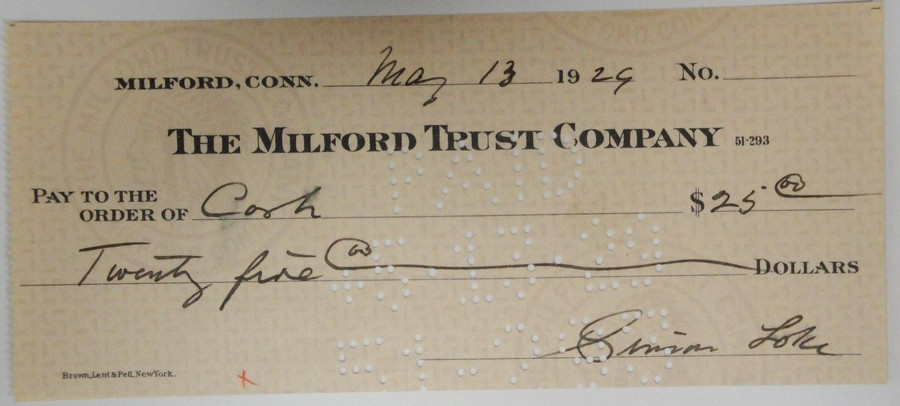 MILFORD, CONN. May 13 1929 No.
THE MILFORD TRUST COMPANY 51-293
PAY TO THE
ORDER OF Cash $25 00
Twenty five 00 DOLLARS
Simon Lake
Brown, Lent & Pell, New York.